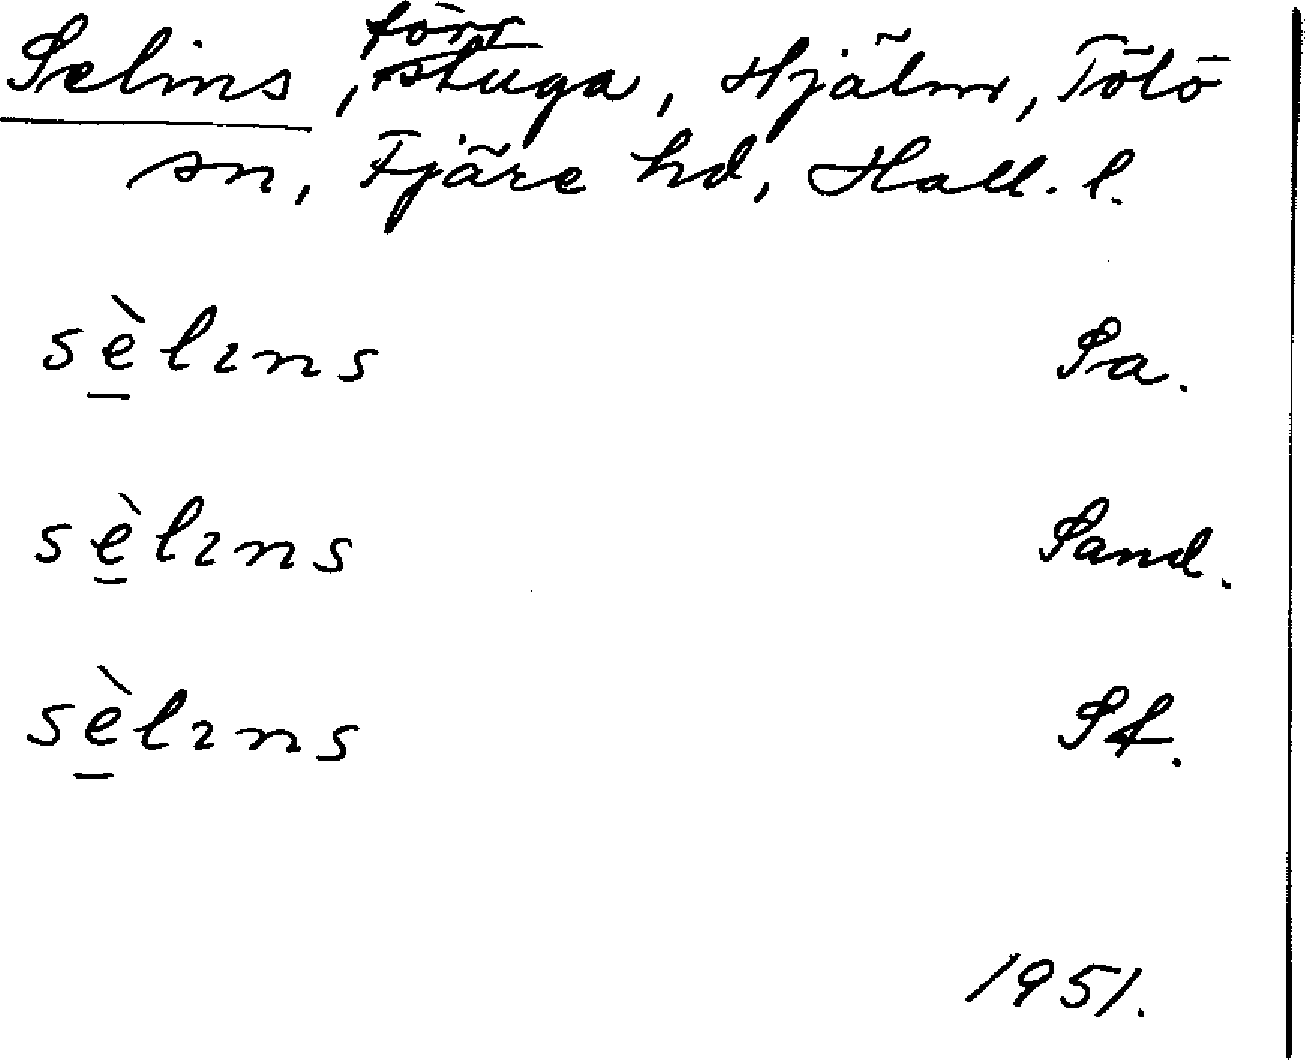 Selins, förr stuga, Hjälm, Tölö
sn, Fjäre hd, Hall. l.
sèlıns Sa.
sèlıns Sand.
sèlıns St.
1951.